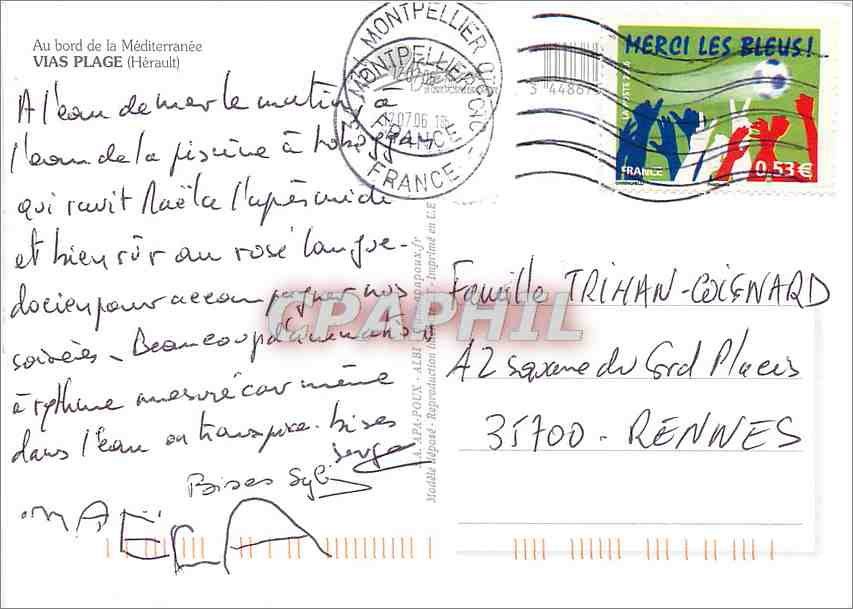 Au bord de la Méditerranée
VIAS PLAGE (Hérault)
A l'eau de mer le matin, à
l'eau de la piscine à
qui ravit Maëla l'après midi
et bien sûr au rosé langue-
docien pour accompagner nos
soirées - Beaucoup d'animations
à rythme mesuré car même
dans l'eau on transpire. bises
Serge
Bises Syl
"MAËLA
MONTPELLIER CTC
MONTPELLIER CTC
12.07.06
FRANCE
FRANCE
3 44867
MERCI LES BLEUS!
LA POSTE 2006
FRANCE
0,53€
Famille TRIHAN-COIGNARD
A2 square du Grd Placis
35700 - RENNES
CPAPHIL
Modèle déposé - Reproduction - Imprimé en U.E
APA-POUX - ALBI apapoux.fr